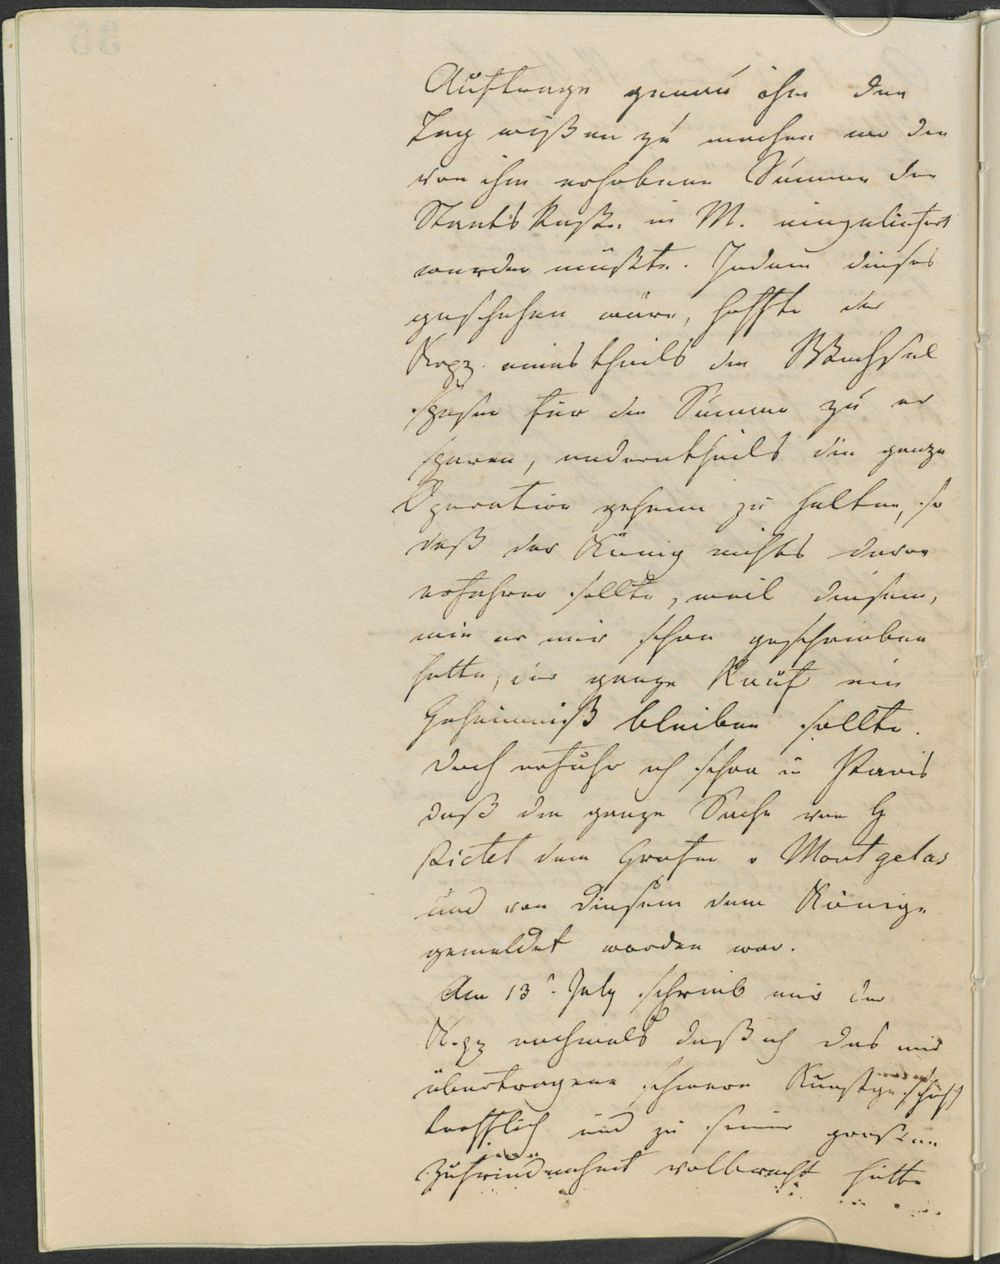 Auftrage genau ihm den
Tag wißen zu machen wo die
von ihm erhobene Summe der
Staats Kaße in M. eingeliefert
werden müßte. Indem dieses
geschehen wäre, hoffte der
Kopz. eines theils die Wechsel
spesen für die Summe zu er
sparen, anderntheils die ganze
Operation geheim zu halten, so
daß der König nichts davon
erfahren sollte, weil diesem,
wie er mir schon geschrieben
hatte, der ganze Kauf ein
Geheimniß bleiben sollte.
doch erfuhr ich schon in Paris
daß die ganze Sache von H
Pictet dem Grafen v Montgelas
und von diesem dem Könige
gemeldet worden war.
Am 13t. July schrieb mir der
K.pz nochmals daß ich das mir
übertragene schwere Kunstgeschäft
trefflich und zu seiner großen
Zufriedenheit vollbracht hätte